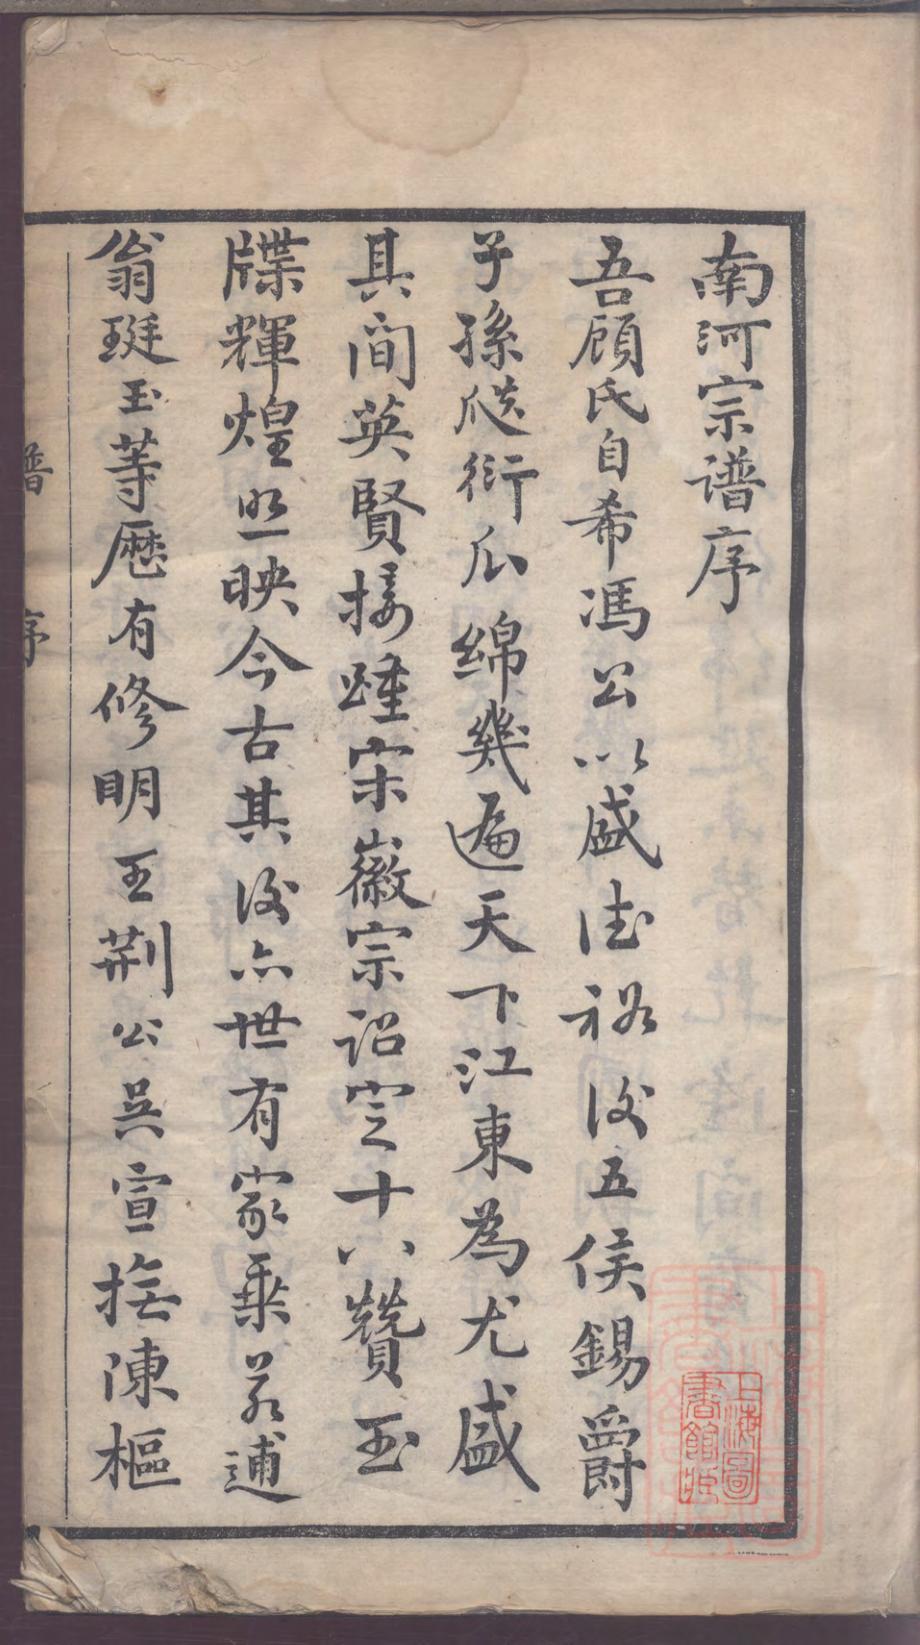 南河宗谱序
吾顧氏自希馮公以盛德裕後五侯錫爵
子孫瓞衍瓜綿幾遍天下江東為尤盛
其間英賢接踵宋徽宗詔定十八贊玉
牒輝煌照映今古其後亦世有家乗若逋
翁珽玉等歷有修明王荆公吳宣撫陳樞
譜 序
上海圖書館藏